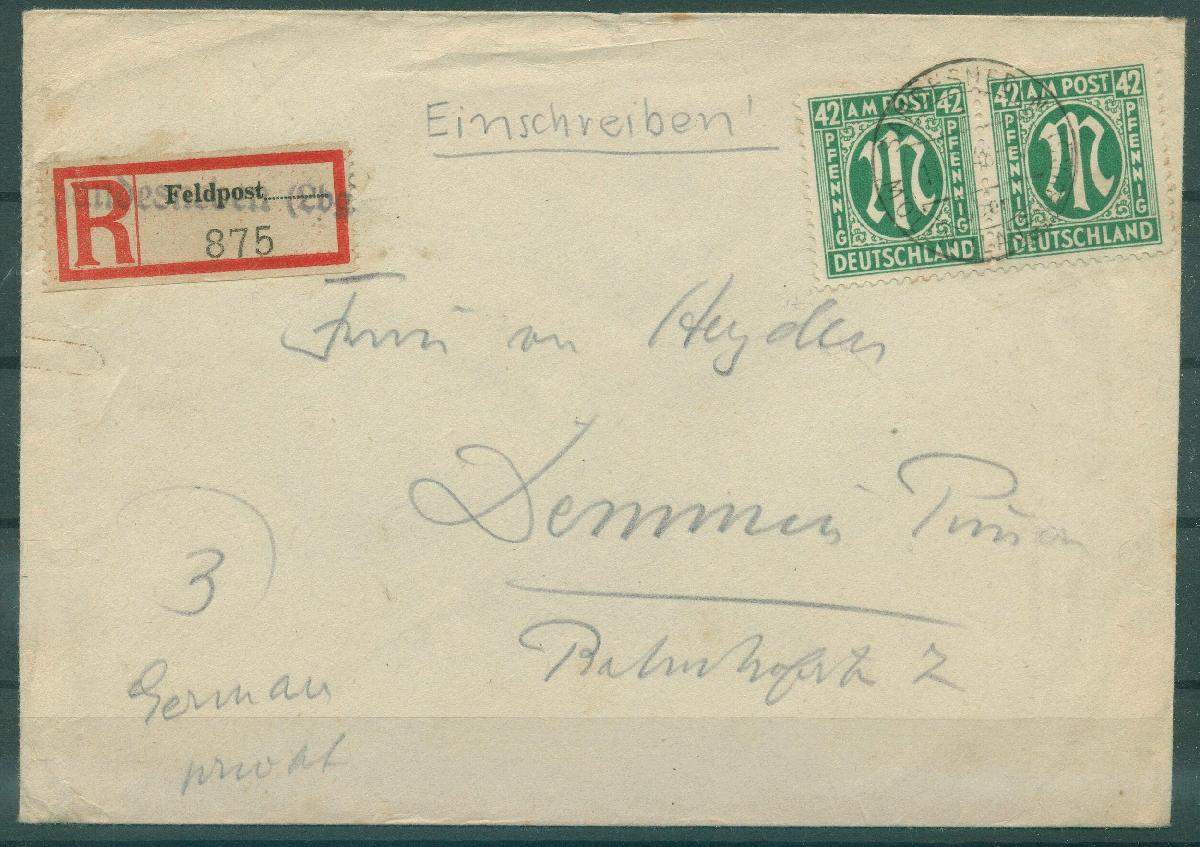 Einschreiben!
42 AM POST 42
PFENNIG PFENNIG
M
DEUTSCHLAND
42 AM POST 42
PFENNIG PFENNIG
M
DEUTSCHLAND
R
Feldpost
(Lbg.
875
Frau von Heyden
Demmin
Bahnhofstr 2
3
German
privat